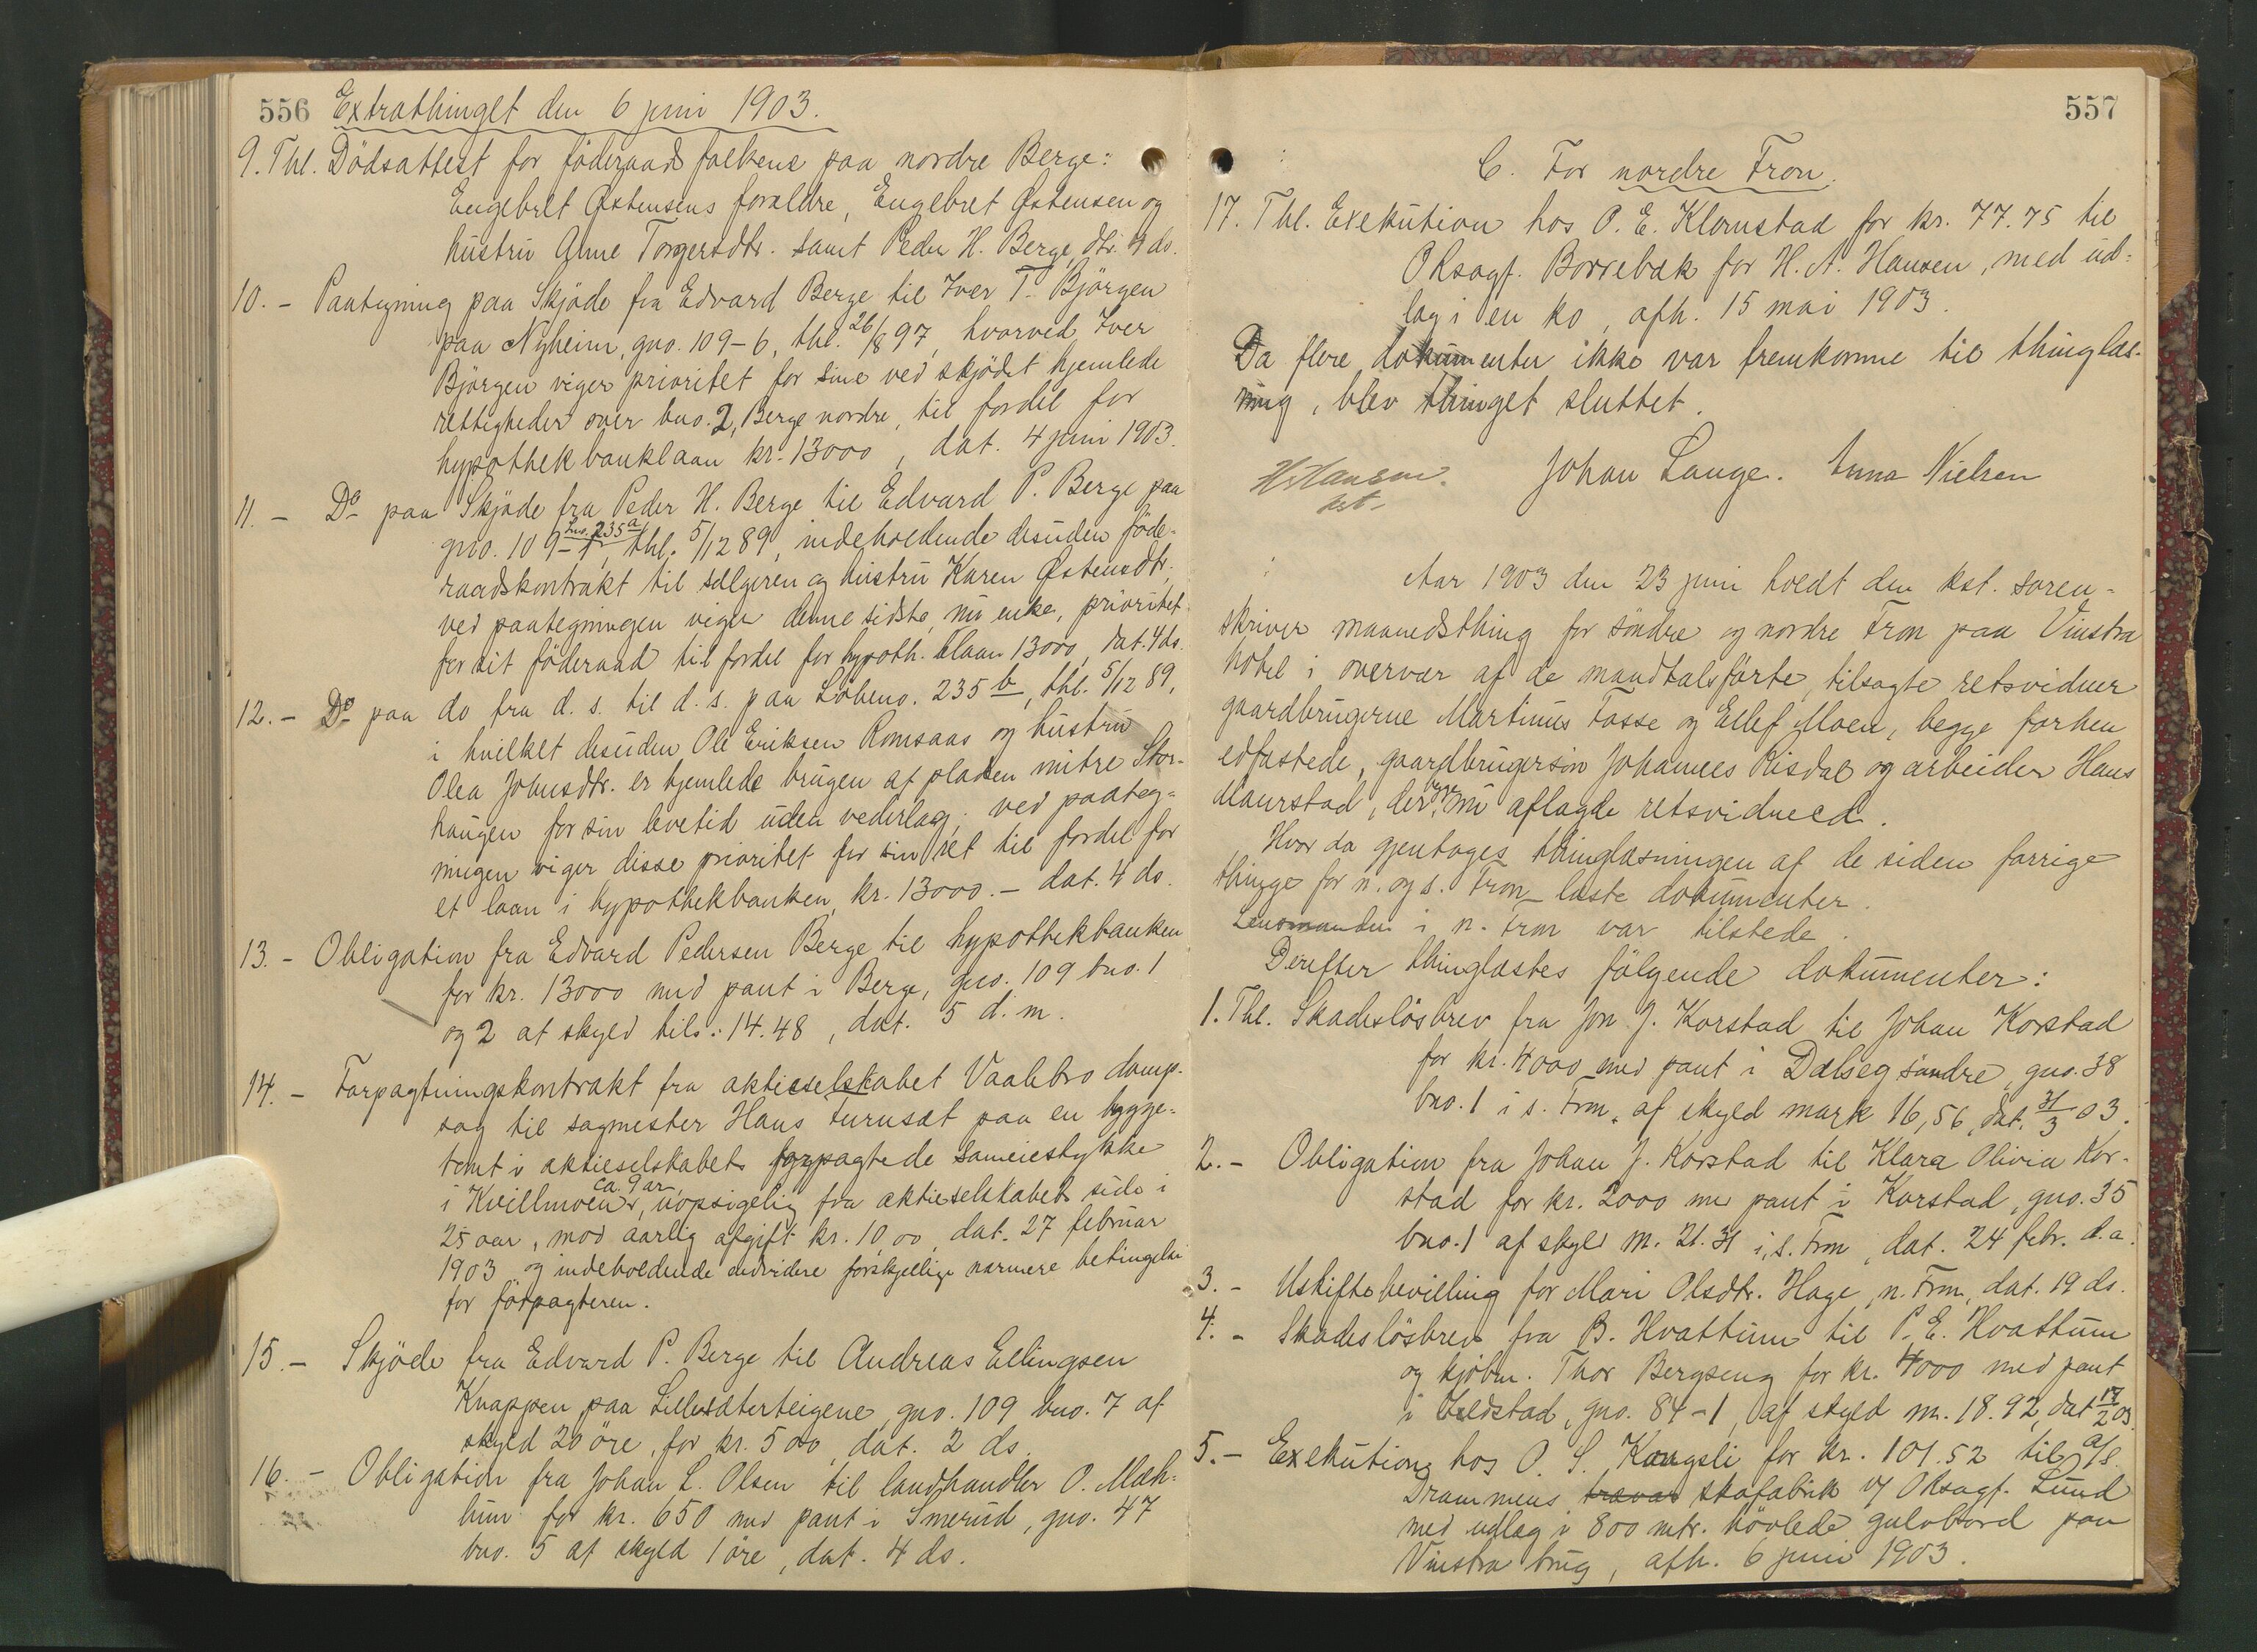 556 Extrathinget den 6 juni 1903.
9. Thl. Dödsattest for föderaadsfolkene paa nordre Berge:
Engebret Østensens forældre, Engebret Østensen og
hustru Anne Torgersdtr. samt Peder H. Berge, dtr. 4 ds.
10. - Paategning paa Skjöde fra Edvard Berge til Iver T. Björgen
paa Nyheim, gno. 109-6, thl. 26/8 97, hvorved Iver
Björgen viger prioritet for sine ved skjödet hjemlede
rettigheder over bno. 2, Berge nordre, til fordel for
hypothekbanklaan kr. 13000, dat. 4 juni 1903.
11. - Do paa Skjöde fra Peder H. Berge til Edvard P. Berge paa
Lno. 235a
gno. 109-1, thl. 5/12 89, indeholdende desuden föde-
raadskontrakt til sælgeren og hustru Karen Østensdtr.,
ved paategningen viger denne sidste, nu enke, prioritet
for sit föderaad til fordel for hypoth. blaan 13000, dat. 4 ds.
12. - Do paa do fra d. s. til d. s. paa Löbeno. 235 b, thl. 5/12 89,
i hvilket desuden Ole Eriksen Romsaas og hustru
Olea Johnsdtr. er hjemlede brugen af pladsen nitre Stor-
haugen for sin levetid uden vederlag; ved paateg-
ningen viger disse prioritet for sin ret til fordel for
et laan i hypothekbanken, kr. 13000.- dat. 4 ds.
13. - Obligation fra Edvard Pedersen Berge til hypothekbanken
for kr. 13000 med pant i Berge, gno. 109 bno. 1
og 2 af skyld tils.: 14.48, dat. 5 d. m.
14. - Forpagtningskontrakt fra aktieselskabet Vaalebro damp-
sag til sagmester Hans Furuset paa en bygge-
tomt i aktieselskabets forpagtede Sameiestykke
ca. 9 ar
i Kvillmoen, uopsigelig fra aktieselskabets side i
25 aar, mod aarlig afgift kr. 10,00, dat. 27 februar
1903 og indeholdende endvidere forskjellige nærmere betingelser
for forpagteren.
15. - Skjöde fra Edvard P. Berge til Andreas Ellingsen
Knappen paa Lillesæterteigene, gno. 109 bno. 7 af
skyld 20 öre, for kr. 500, dat. 2 ds.
16. - Obligation fra Johan L. Olsen til landhandler O. Mæh-
lum for kr. 650 med pant i Smerud, gno. 47
bno. 5 af skyld 1 öre, dat. 4 ds.
557
C. For nordre Fron.
17. Thl. Exekution hos O. E. Klomstad for kr. 77.75 til
ORsagf. Borrebæk for H. A. Hansen, med ud-
læg i en ko, afh. 15 mai 1903.
Da flere dokumenter ikke var fremkomne til thinglæs-
ning, blev thinget sluttet.
H. Hansen. Johan Lange. Anna Nielsen
kst.
Aar 1903 den 23 juni holdt den kst. soren-
skriver maanedsthing for söndre og nordre Fron paa Vinstra
hotel i overvær af de mandtalsförte, tilsagte retsvidner
gaardbrugerne Martinus Fosse og Ellef Moen, begge forhen
edfæstede, gaardbrugersön Johannes Risdal og arbeider Hans
Maurstad, der nu aflagde retsvidneed.
Hvor da gjentoges thinglæsningen af de siden forrige
thinge for n. og s. Fron læste dokumenter.
Lensmanden i n. Fron var tilstede.
Derefter thinglæstes fölgende dokumenter:
1. Thl. Skadeslösbrev fra Jon J. Korstad til Johan Korstad
for kr. 4000 med pant i Dalseg söndre, gno. 38
bno. 1 i s. Fron, af skyld mark 16,56, dat. 31/3 03.
2. - Obligation fra Johan J. Korstad til Klara Olivia Kor-
stad for kr. 2000 med pant i Korstad, gno. 35
bno. 1 af skyld m. 21.31 i s. Fron, dat. 24 febr. d. a.
3. - Uskiftebevilling for Mari Olsdtr. Hage, n. Fron, dat. 19 ds.
4. - Skadeslösbrev fra B. Hvattum til P. E. Hvattum
og kjöbm. Thor Bergseng for kr. 4000 med pant
i Veldstad, gno. 84-1, af skyld m. 18.92, dat 17/2 03
5. - Exekution hos O. S. Kongsli for kr. 101.52 til a/s.
Drammens travar skofabrik v/ ORsagf. Lund
med udlæg i 800 mtr. hövlede gulvbord paa
Vinstra brug, afh. 6 juni 1903.